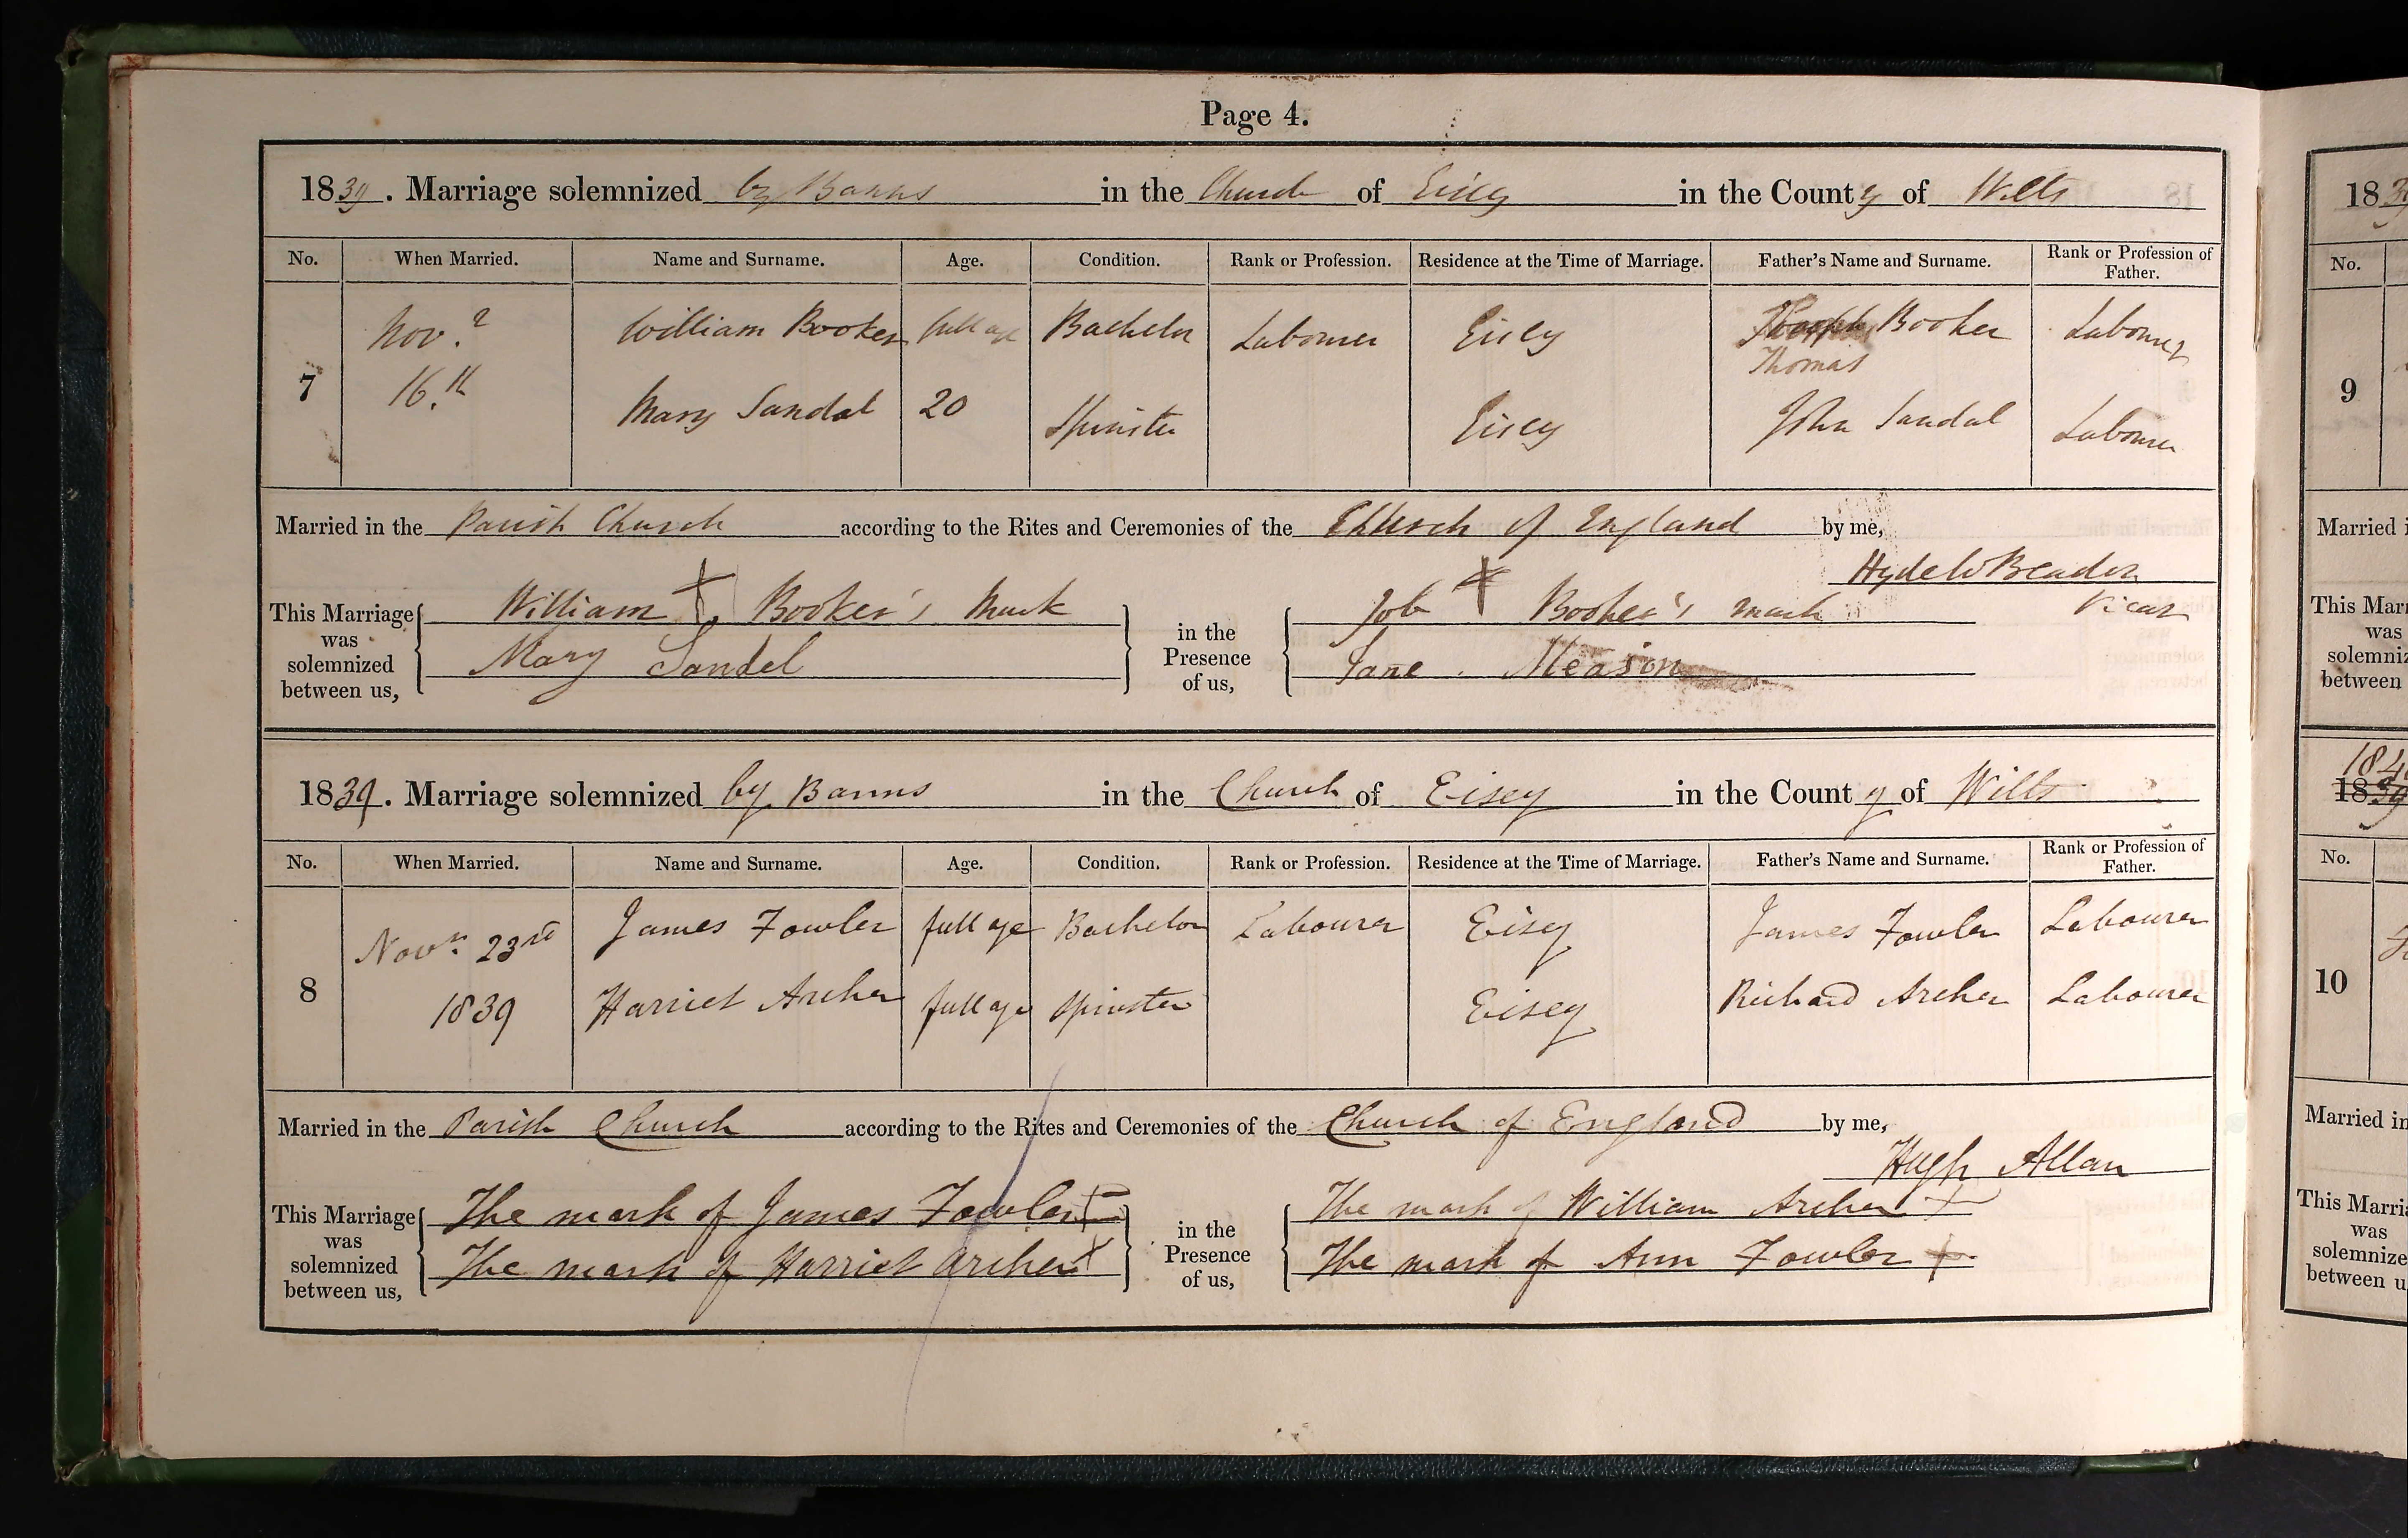 Page 4.
1839. Marriage solemnized by Banns in the Church of Eisey in the County of Wilts
No. When Married. Name and Surname. Age. Condition. Rank or Profession. Residence at the Time of Marriage. Father's Name and Surname. Rank or Profession of Father.
Nov.r William Booker full age Bachelor Labourer Eisey Booker Labourer
Thomas
7 16.th Mary Sandal 20 Spinster Eisey John Sandal Labourer
Married in the Parish Church according to the Rites and Ceremonies of the Church of England by me,
Hyde W Beadon
Vicar
This Marriage was solemnized between us,
William X Booker's Mark
Mary Sandel
in the Presence of us,
Job X Booker's mark
Jane Meason
1839. Marriage solemnized by Banns in the Church of Eisey in the County of Wilts
No. When Married. Name and Surname. Age. Condition. Rank or Profession. Residence at the Time of Marriage. Father's Name and Surname. Rank or Profession of Father.
Novr. 23rd James Fowler full age Bachelor Labourer Eisey James Fowler Labourer
8 1839 Harriet Archer full age Spinster Eisey Richard Archer Labourer
Married in the Parish Church according to the Rites and Ceremonies of the Church of England by me,
Hugh Allan
This Marriage was solemnized between us,
The mark of James Fowler X
The mark of Harriet Archer X
in the Presence of us,
The mark of William Archer X
The mark of Ann Fowler X
18
No.
9
Married
was
between
18
No.
10
Married in
was